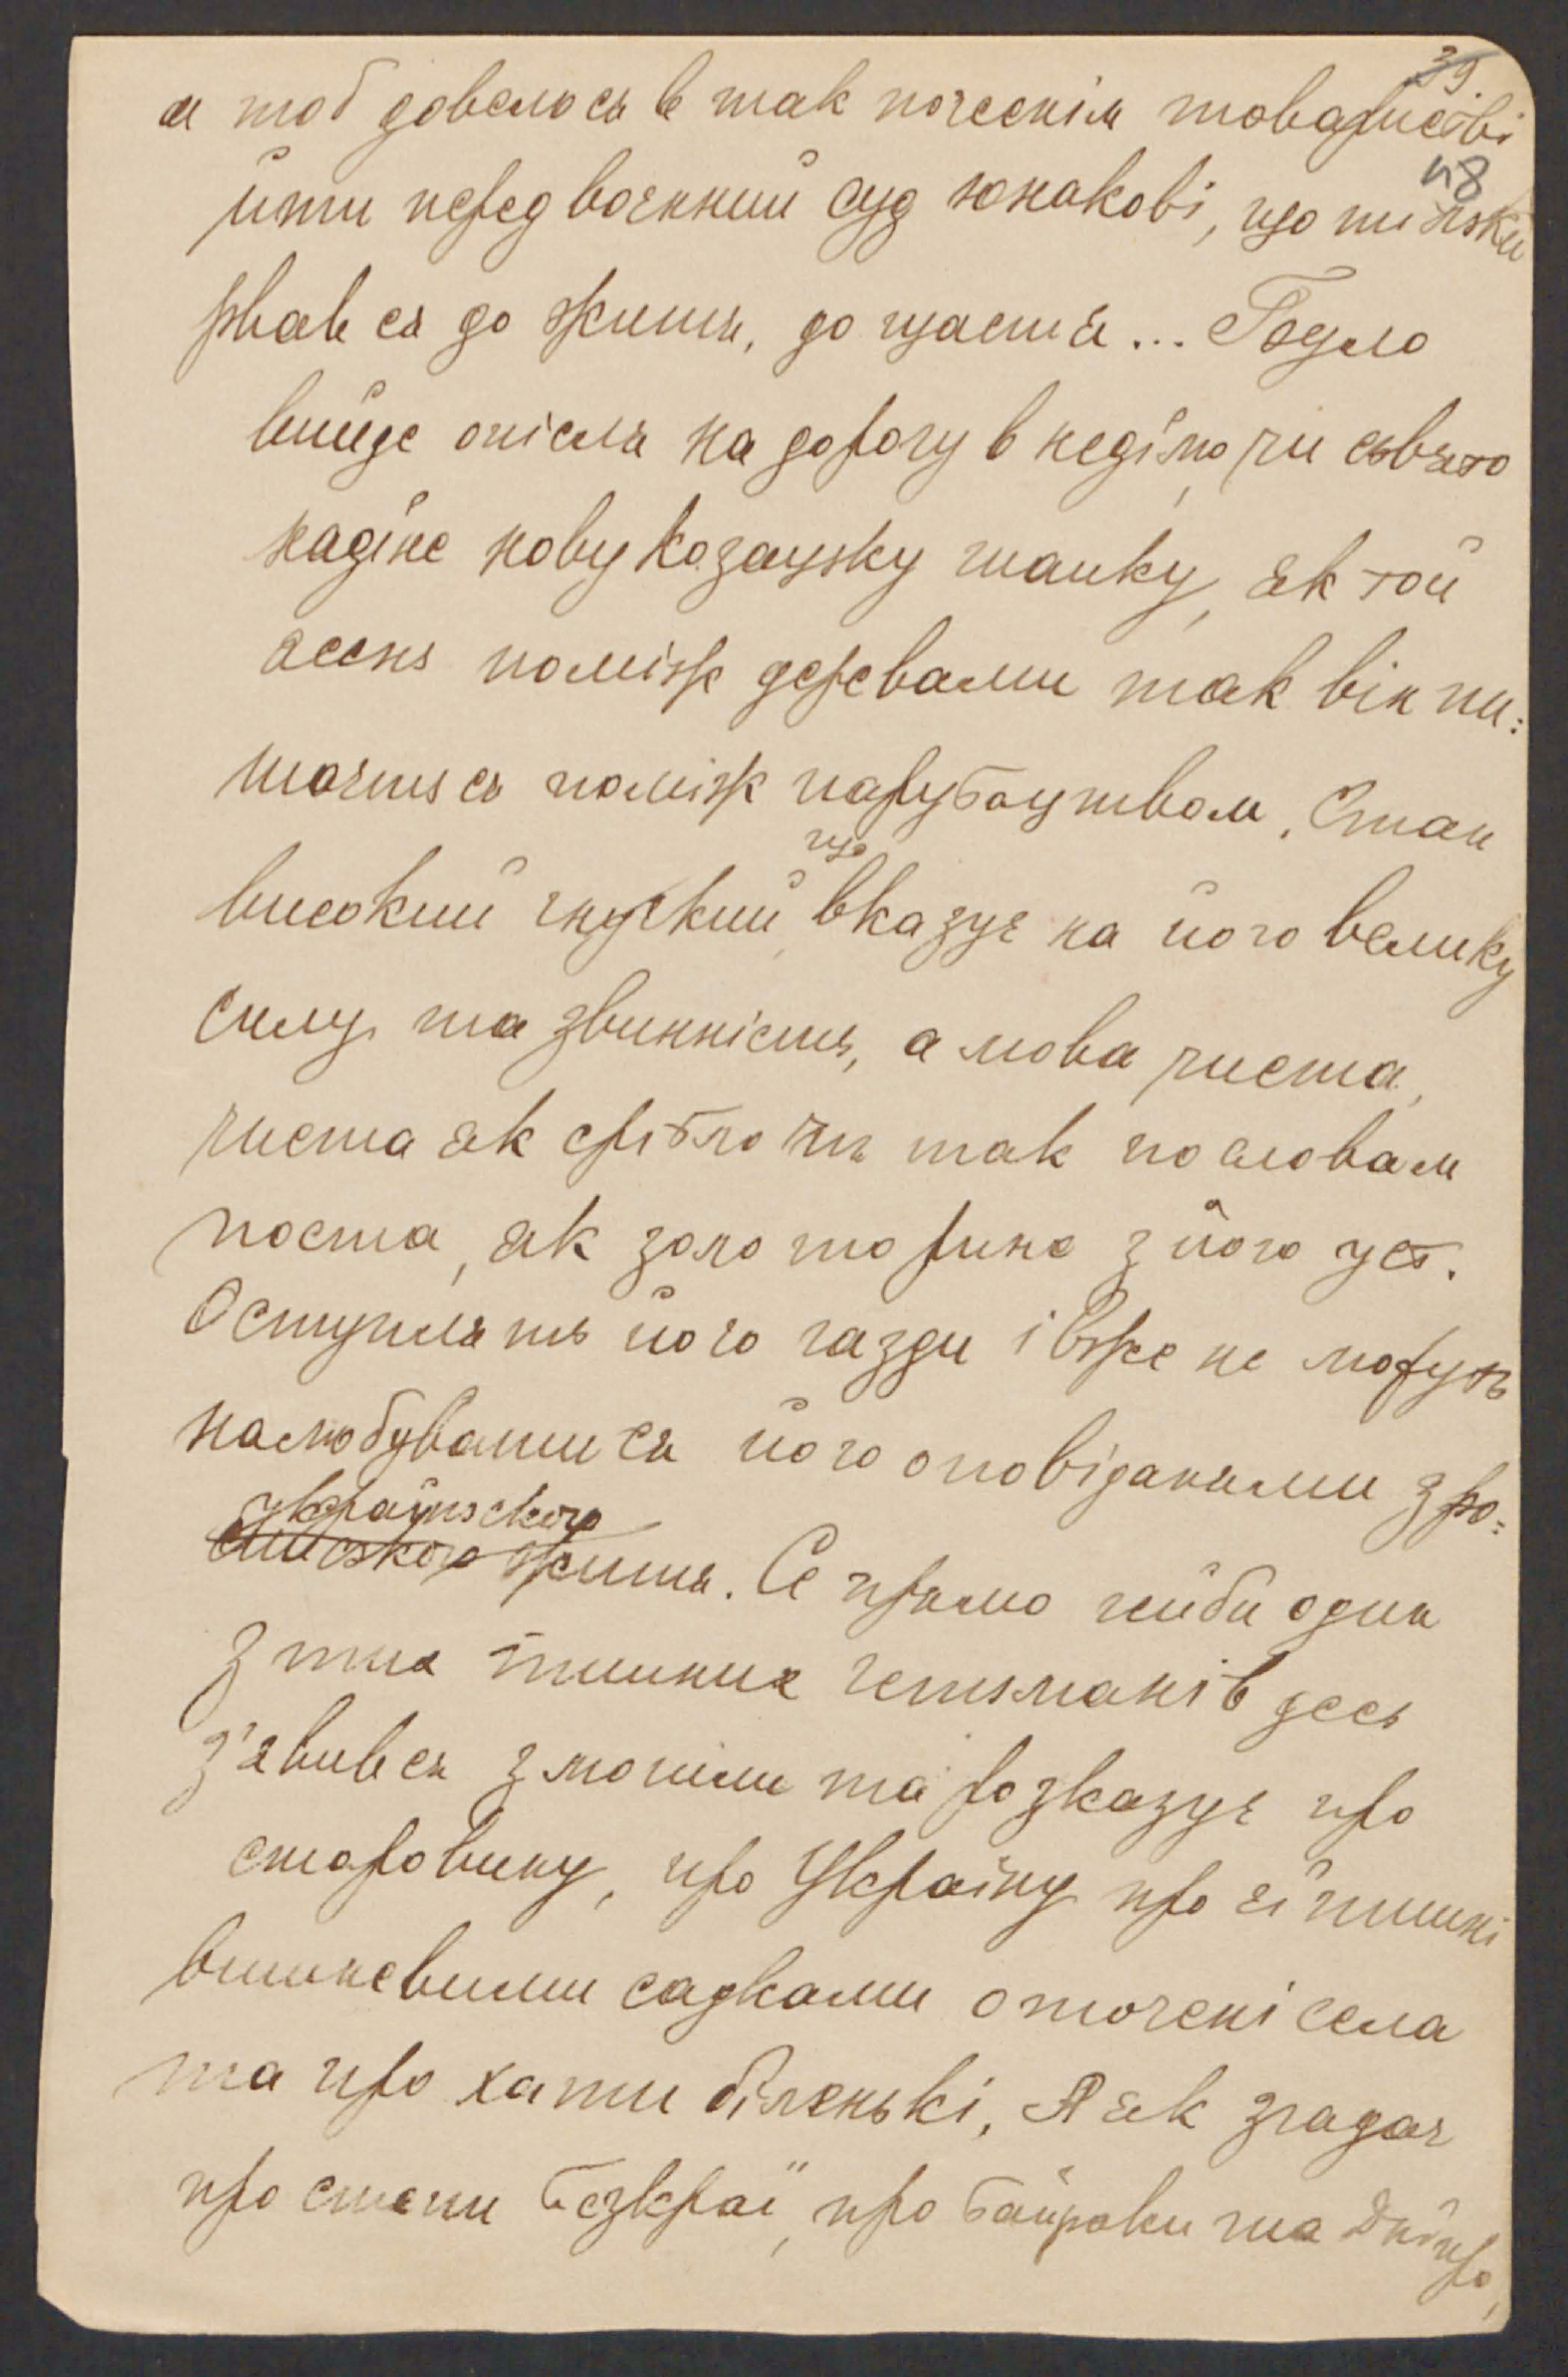 39.
48
а тоб довелось в так почеснім товаристві
йти перед воєнний суд юнакові, що ти
рвав ся до житя, до щастя... Було
вийде опісля на дорогу в неділю, чи сьвято
надіне нову козацьку шапку, як той
ясень поміж деревами так він пи=
шаєть ся поміж парубоцтвом. Стан
високий гнучкий, що вказує на його велику
силу та звинність, а мова чиста,
чиста як срібло чи так по словам
поета, як золото рине з його уст.
Оступлять його газди і вже не можуть
налюбувати ся його оповіданями з ро=
українського
житя. Се прямо гейби один
з тих пишних гетьманів десь
з'явив ся з могили та розказує про
старовину, про Україну про єї пишні
вишневими садками оточені села
та про хати біленькі, А як згадає
про степи безкраї, про байраки та Дніпро,